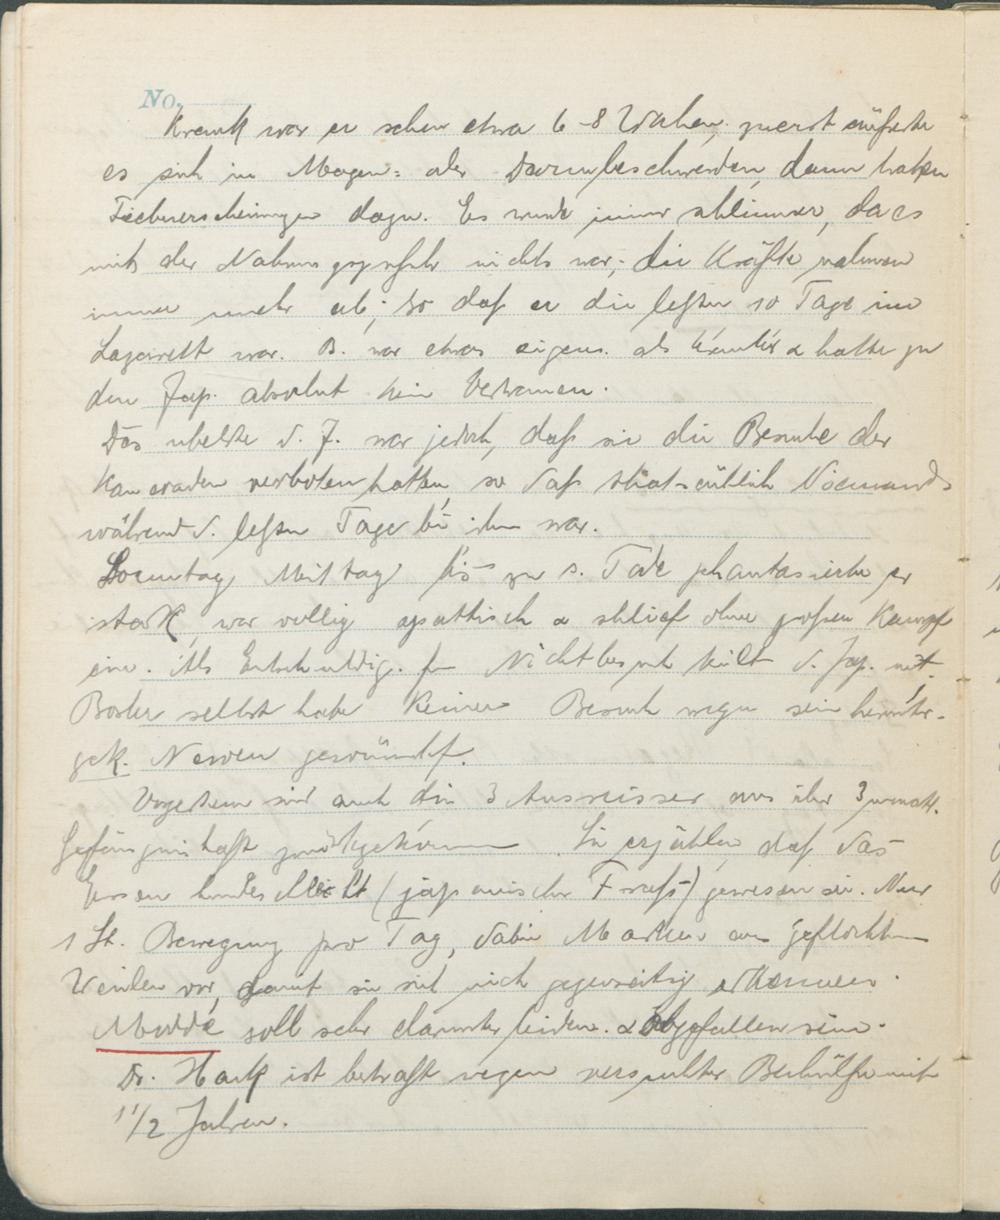 No.
Krank war er schon etwa 6-8 Wochen, zuerst äußerte
es sich in Magen- oder Darmbeschwerden, dann traten
Fiebererscheinungen dazu. Es wurde immer schlimmer, da es
mit der Nahrungszufuhr nichts war; die Kräfte nahmen
immer mehr ab, so daß er die letzten 10 Tage im
Lazarett war. B. war etwas eigens. als Kranker & hatte zu
den Jap. absolut kein Vertrauen.
Das übelste d. J. war jedoch, daß sie die Besuche der
Kameraden verboten hatten, so daß thatsächlich Niemand
während d. letzten Tage bei ihm war.
Sonntag Mittag bis zu s. Tode phantasierte er
stark, war völlig apathisch & schlief ohne großen Kampf
ein. Als Entschuldig. für Nichtbesuch teilt d. Jap. mit.
Bosler selbst habe keinen Besuch wegen sein herunter-
gek. Nerven gewünscht.
Vorgestern sind auch die 3 Ausreisser aus ihrer 3 monatl.
Gefängnishaft zurückgekommen. Sie erzählen daß das
Essen hundeschlecht (japanischer Frass) gewesen sei. Nur
1 St. Bewegung pro Tag, dabei Masken aus geflochtenen
Weiden vor, damit sie sich nicht gegenseitig erkennen.
Moddé soll sehr darunter leiden & abgefallen sein.
Dr. Hack ist bestraft wegen versuchter Beihülfe mit
1 1/2 Jahren.